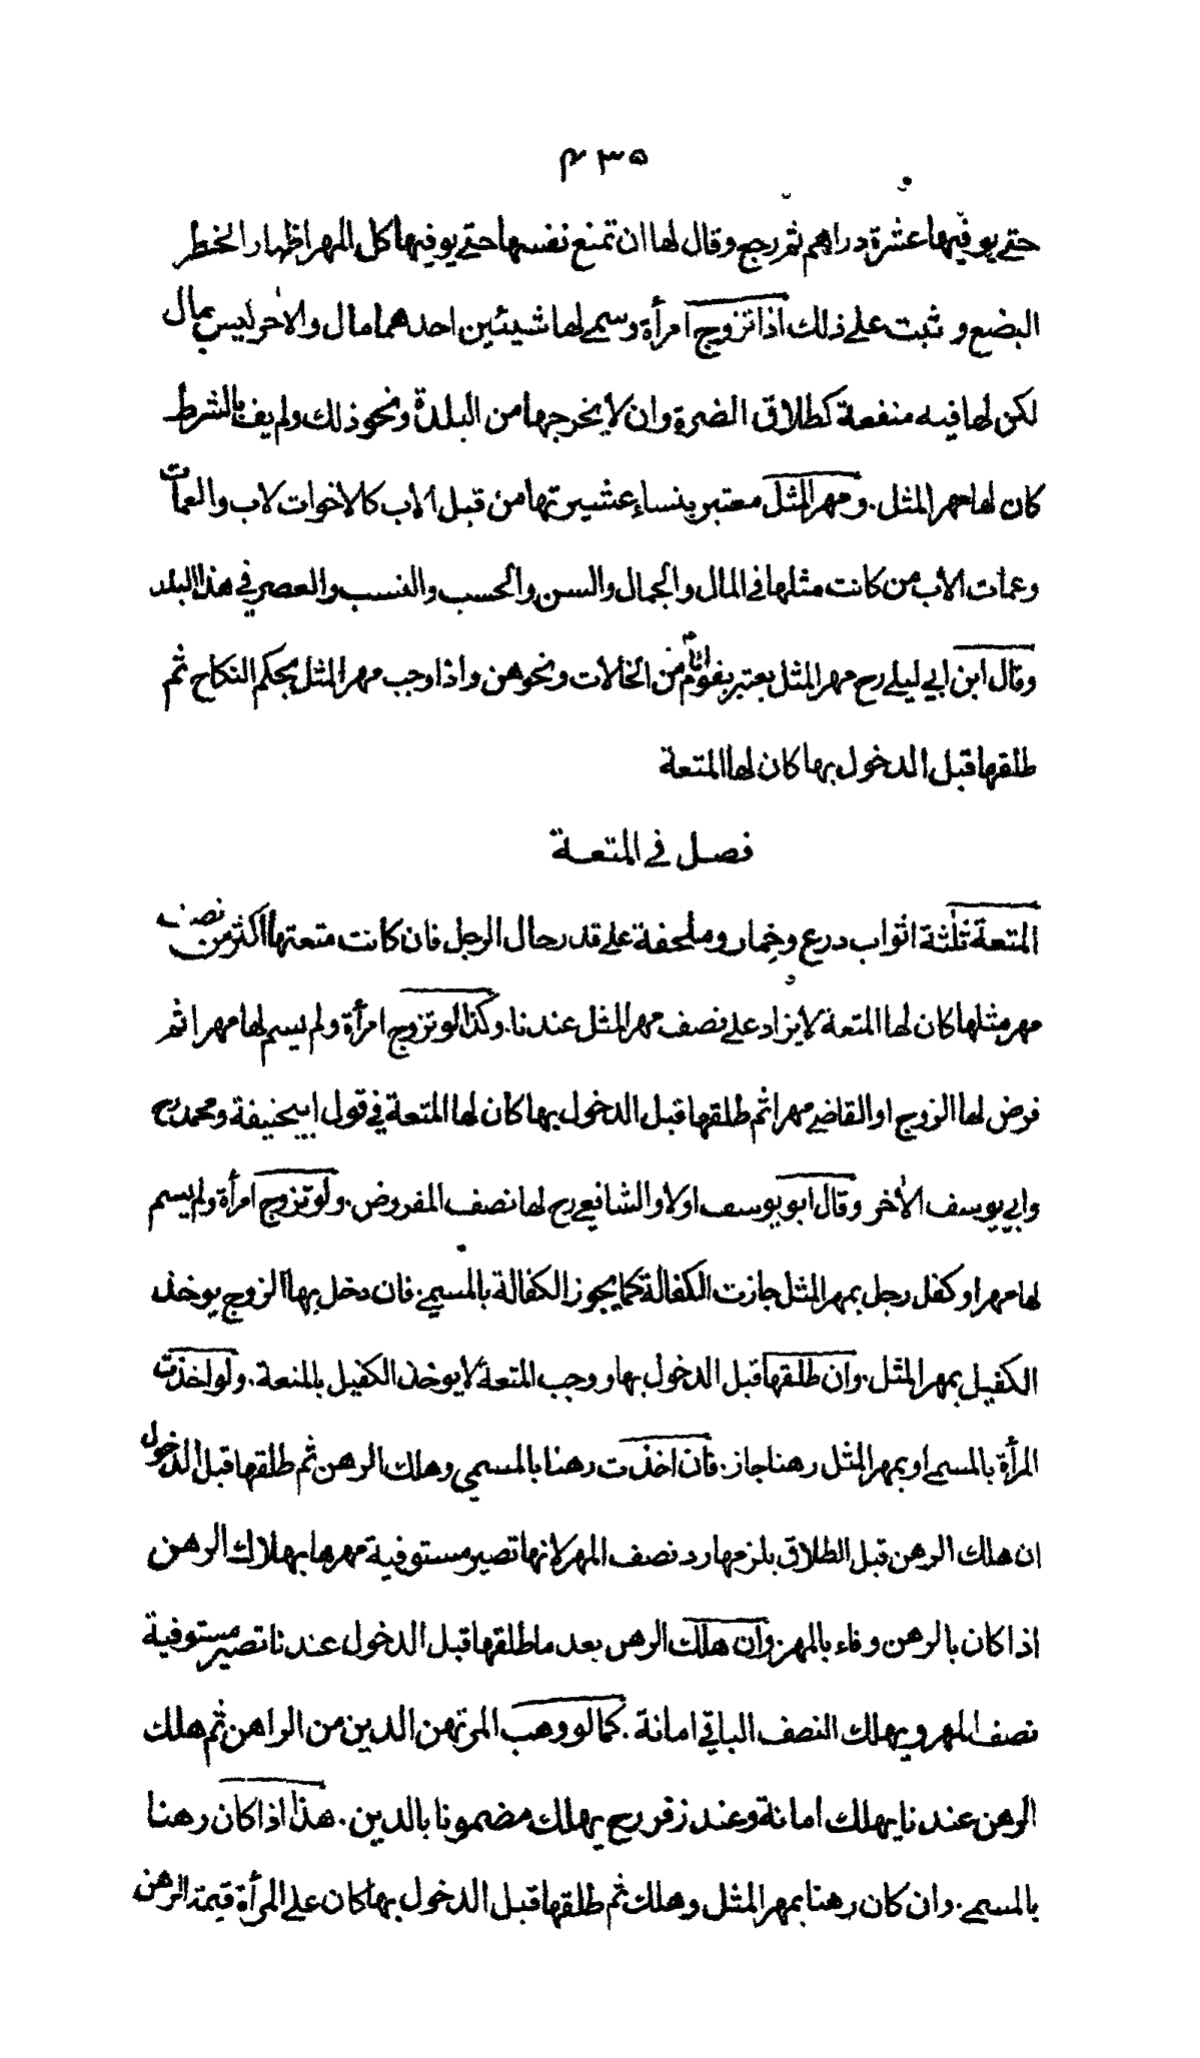 ۴۳۵
حتى يوفيها عشرة دراهم ثم رجع وقال لها ان تمنع نفسها حتى يوفيها كل المهر اظهار الخطر
البضع و ثبت على ذلك اذا تزوج امرأة وسمى لها شيئين احدهما مال والاخر ليس بمال
لكن لها فيه منفعة كطلاق الضرة وان لا يخرجها من البلدة ونحو ذلك ولم يف بالشرط
كان لها مهر المثل. ومهر المثل معتبر بنساء عشيرتها من قبل الاب كالاخوات لاب والعمات
وعمات الاب من كانت مثلها في المال والجمال والسن والحسب والنسب والعصر في هذا البلد
وقال ابن ابي ليلى رح مهر المثل يعتبر بقوم امها من الخالات ونحوهن واذا وجب مهر المثل بحكم النكاح ثم
طلقها قبل الدخول بها كان لها المتعة
فصل في المتعة
المتعة ثلثة اثواب درع وخمار وملحفة على قدر حال الرجل فان كانت متعتها اكثر من نصف
مهر مثلها كان لها المتعة لا يزاد على نصف مهر المثل عندنا. وكذا لو تزوج امرأة ولم يسم لها مهرا ثم
فرض لها الزوج او القاضي مهرا ثم طلقها قبل الدخول بها كان لها المتعة في قول ابيحنيفة ومحمد رح
وابي يوسف الاخر وقال ابو يوسف اولا والشافعي رح لها نصف المفروض. ولو تزوج امرأة ولم يسم
لها مهرا وكفل رجل بمهر المثل جازت الكفالة كما يجوز الكفالة بالمسمى. فان دخل بها الزوج يوخذ
الكفيل بمهر المثل. وان طلقها قبل الدخول بها ووجب المتعة لا يوخذ الكفيل بالمتعة. ولو اخذت
المرأة بالمسمى او بمهر المثل رهنا جاز. فان اخذت رهنا بالمسمى وهلك الرهن ثم طلقها قبل الدخول
ان هلك الرهن قبل الطلاق يلزمها رد نصف المهر لانها تصير مستوفية مهرها بهلاك الرهن
اذا كان بالرهن وفاء بالمهر. وان هلك الرهن بعد ما طلقها قبل الدخول عندنا تصير مستوفية
نصف المهر ويهلك النصف الباقي امانة. كما لو وهب المرتهن الدين من الراهن ثم هلك
الرهن عندنا يهلك امانة وعند زفر رح يهلك مضمونا بالدين. هذا اذا كان رهنا
بالمسمى. وان كان رهنا بمهر المثل وهلك ثم طلقها قبل الدخول بها كان على المرأة قيمة الرهن